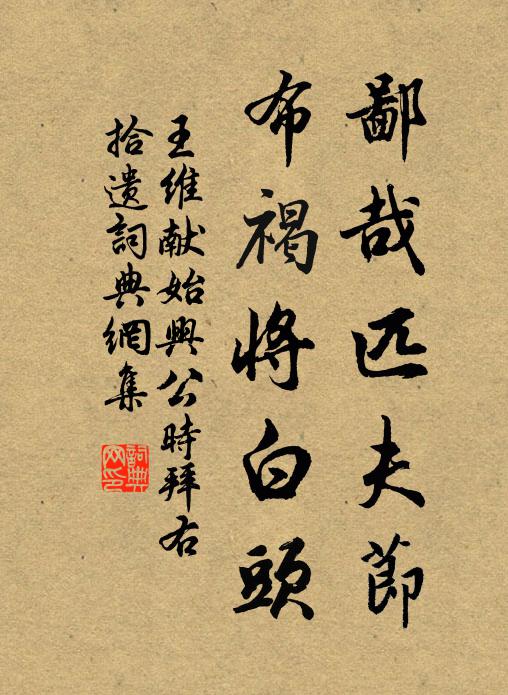 鄙哉匹夫節
布褐將白頭
王維献始興公時拜右
拾遺詞典網集
詞典
网印